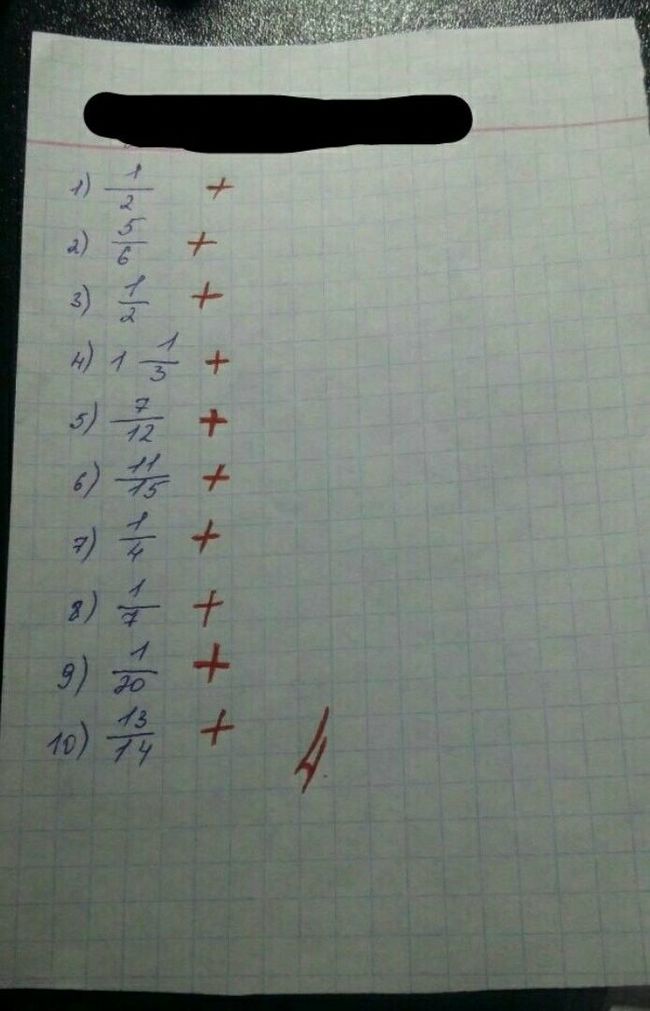 1) 1/2 +
2) 5/6 +
3) 1/2 +
4) 1 1/3 +
5) 7/12 +
6) 11/15 +
7) 1/4 +
8) 1/7 +
9) 1/20 +
10) 13/14 +
4